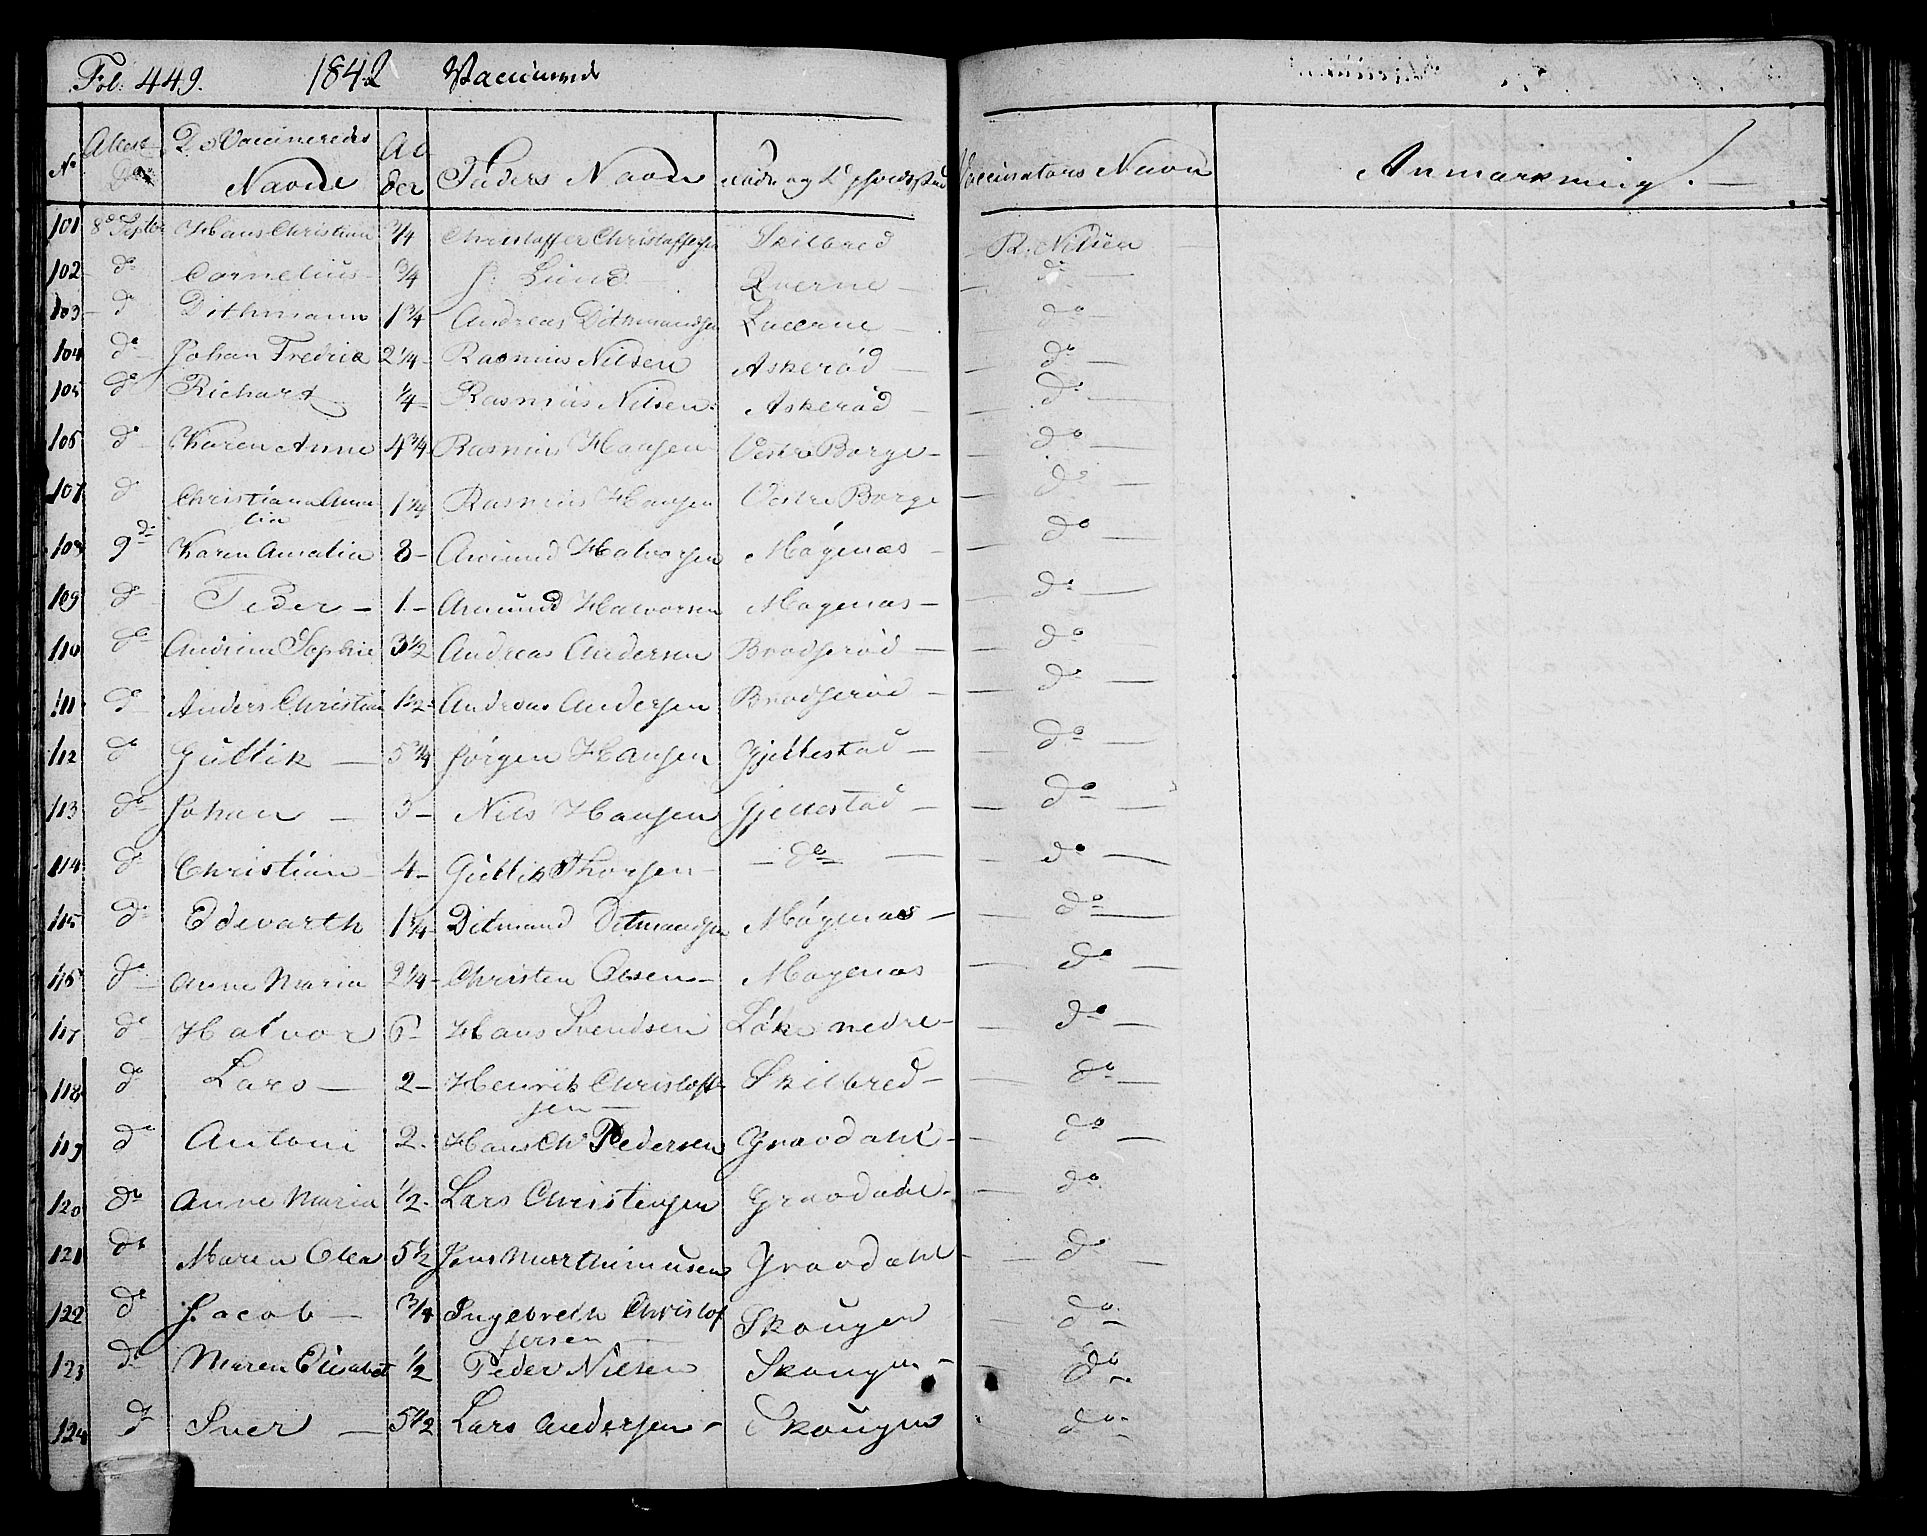 Fol. 449. 1842 Vaccinerede
No Attest De Vaccineredes Al Faders Navn Føde og Opholdssted Vaccinators Navn Anmærkning.
Navne der
101 8de Septbr Hans Christian 3/4 Christoffer Christoffersen Skilbred R. Nilsen
102 do Cornelius 3/4 J. Lund Qverne do
103 do Dithmann 1 3/4 Andreas Dithmandsen Qverne do
104 do Johan Fredrik 2 1/4 Rasmus Nilsen Askerød do
105 do Richart 1/4 Rasmus Nilsen Askerød do
106 do Karen Anne 4 3/4 Rasmus Hansen Vestre Borge do
107 do Christiana Ama 1 3/4 Rasmus Hansen Vestre Borge do
lia
108 9de Karen Amalia 8 Amund Halvorsen Møgenæs do
109 do Peder 1 Amund Halvorsen Møgenæs do
110 do Andrine Sophie 3 1/2 Andreas Andersen Brodserød do
111 do Anders Christian 1 1/2 Andreas Andersen Brodserød do
112 do Gullik 5 3/4 Jørgen Hansen Gjellestad do
113 do Johan 3 Nils Hansen Gjellestad do
114 do Christian 4 Gullik Thorsen do do
115 do Edevarth 1 3/4 Ditmand Ditmandsen Møgenæs do
116 do Anne Maria 2 1/4 Christen Olsen Møgenæs do
117 do Halvor 6 Hans Svendsen Løke nedre do
118 do Lars 2 Henrik Christoffer Skilbred do
sen
119 do Antoni 2 Hans Chr Pedersen Gravdahl do
120 do Anne Maria 1/2 Lars Christensen Gravdahl do
121 do Maren Olea 5 1/2 Jens Morthinusen Gravdahl do
122 do Jacob 3/4 Ingebreth Christof Skougen do
fersen
123 do Maren Elisabet 1/2 Peder Nilsen Skougen do
124 do Iver 5 1/2 Lars Andersen Skougen do